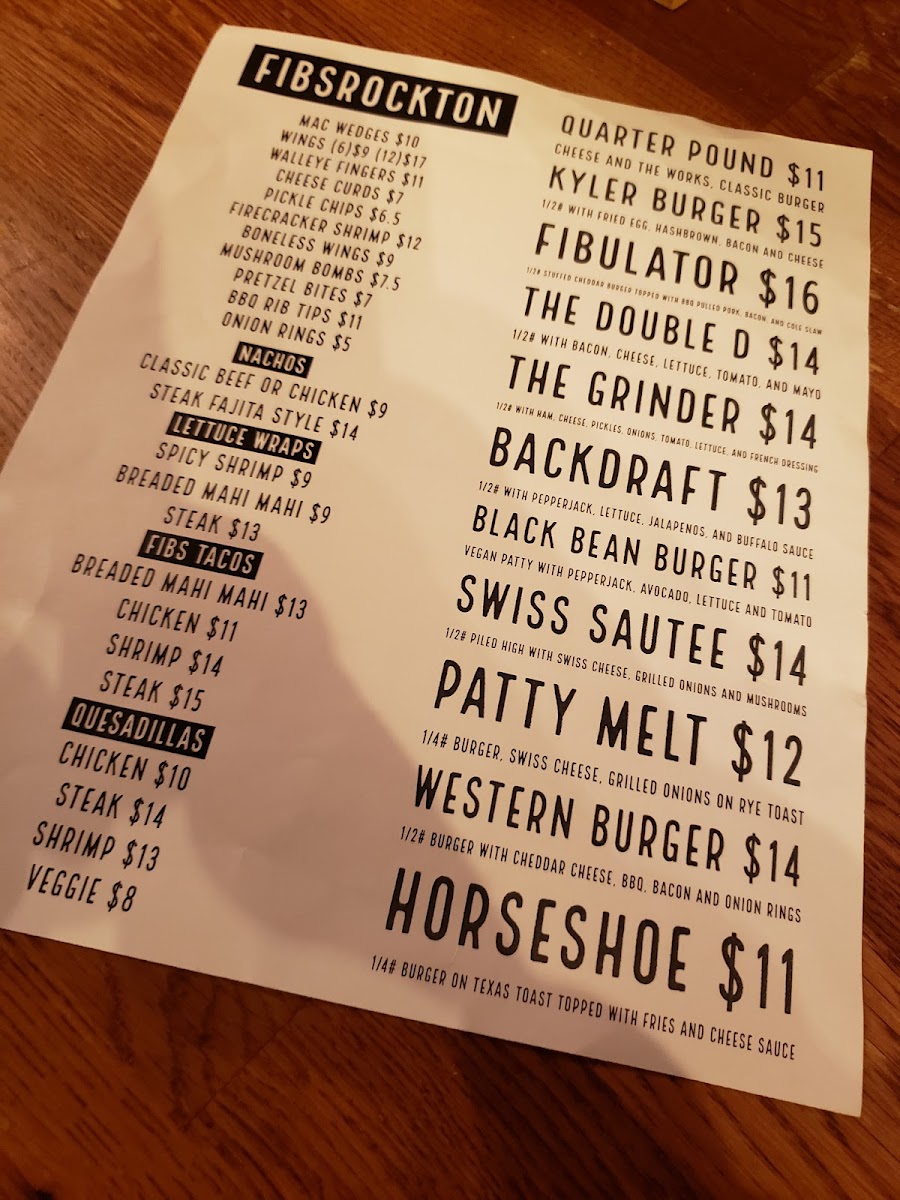 FIBSROCKTON
MAC WEDGES $10
WINGS (6)$9 (12)$17
WALLEYE FINGERS $11
CHEESE CURDS $7
PICKLE CHIPS $6.5
FIRECRACKER SHRIMP $12
BONELESS WINGS $9
MUSHROOM BOMBS $7.5
PRETZEL BITES $7
BBQ RIB TIPS $11
ONION RINGS $5
NACHOS
CLASSIC BEEF OR CHICKEN $9
STEAK FAJITA STYLE $14
LETTUCE WRAPS
SPICY SHRIMP $9
BREADED MAHI MAHI $9
STEAK $13
FIBS TACOS
BREADED MAHI MAHI $13
CHICKEN $11
SHRIMP $14
STEAK $15
QUESADILLAS
CHICKEN $10
STEAK $14
SHRIMP $13
VEGGIE $8
QUARTER POUND $11
CHEESE AND THE WORKS, CLASSIC BURGER
KYLER BURGER $15
1/2# WITH FRIED EGG, HASHBROWN, BACON AND CHEESE
FIBULATOR $16
1/2# STUFFED CHEDDAR BURGER TOPPED WITH BBQ PULLED PORK, BACON, AND COLE SLAW
THE DOUBLE D $14
1/2# WITH BACON, CHEESE, LETTUCE, TOMATO, AND MAYO
THE GRINDER $14
1/2# WITH HAM, CHEESE, PICKLES, ONIONS, TOMATO, LETTUCE, AND FRENCH DRESSING
BACKDRAFT $13
1/2# WITH PEPPERJACK, LETTUCE, JALAPENOS, AND BUFFALO SAUCE
BLACK BEAN BURGER $11
VEGAN PATTY WITH PEPPERJACK, AVOCADO, LETTUCE AND TOMATO
SWISS SAUTEE $14
1/2# PILED HIGH WITH SWISS CHEESE, GRILLED ONIONS AND MUSHROOMS
PATTY MELT $12
1/4# BURGER, SWISS CHEESE, GRILLED ONIONS ON RYE TOAST
WESTERN BURGER $14
1/2# BURGER WITH CHEDDAR CHEESE, BBQ, BACON AND ONION RINGS
HORSESHOE $11
1/4# BURGER ON TEXAS TOAST TOPPED WITH FRIES AND CHEESE SAUCE